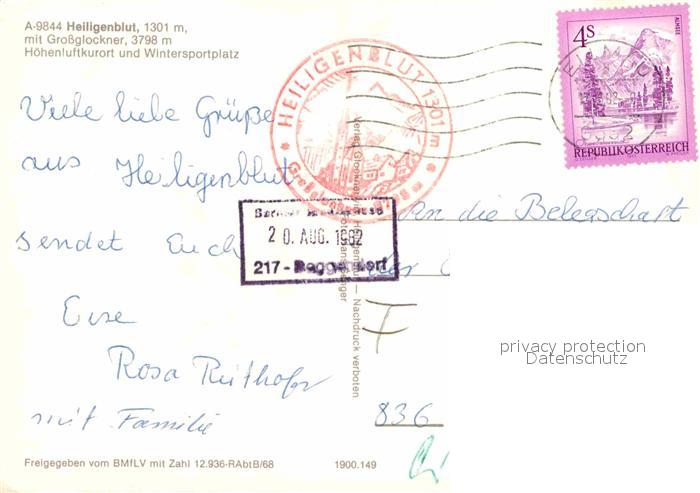 A-9844 Heiligenblut, 1301 m,
mit Großglockner, 3798 m
Höhenluftkurort und Wintersportplatz
Viele liebe Grüße
aus Heiligenblut
sendet Euch
Eure
Rosa Reithofer
mit Familie
HEILIGENBLUT 1301 m
20. AUG. 1982
217 -
Nachdruck verboten
4S
ALMSEE
REPUBLIK ÖSTERREICH
An die Belegschaft
836
privacy protection
Datenschutz
Freigegeben vom BMfLV mit Zahl 12.936-RAbtB/68
1900.149